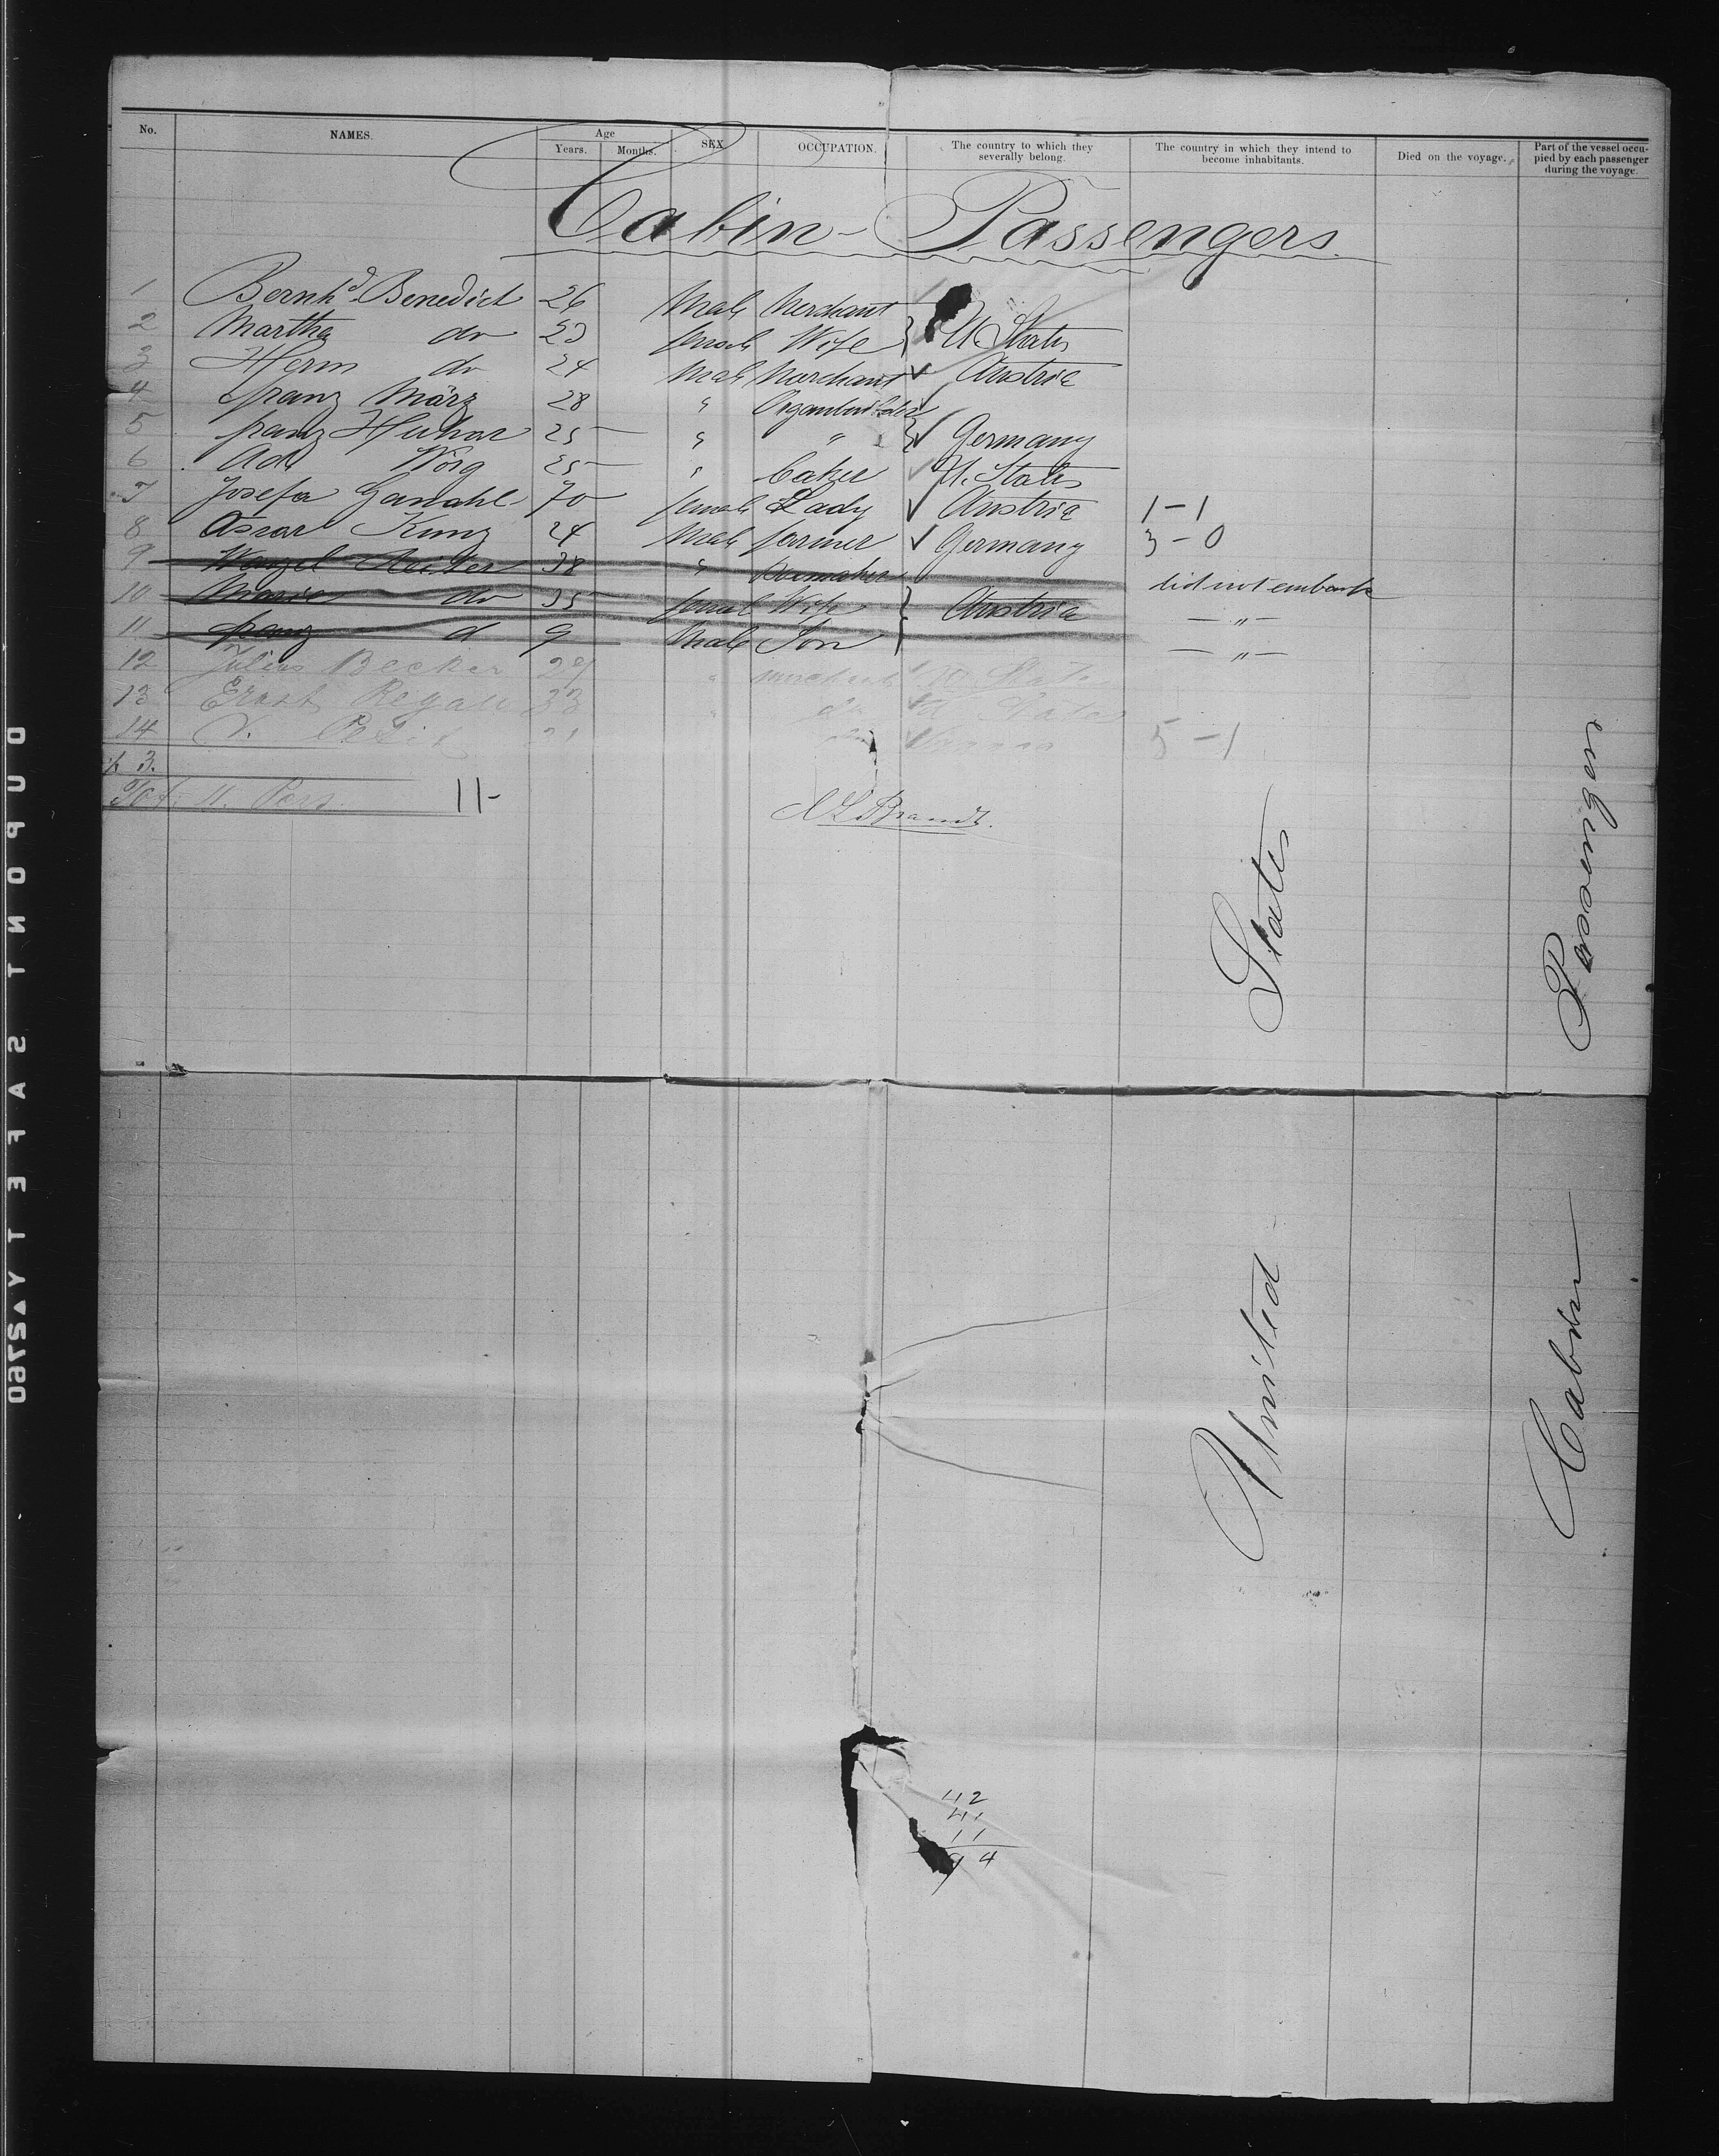 No. NAMES. Age Years. Months. SEX. OCCUPATION. The country to which they severally belong. The country in which they intend to become inhabitants. Died on the voyage. Part of the vessel occupied by each passenger during the voyage.
Cabin-Passengers.
1 Bernhd Benedict 26 Male Merchant
2 Martha do 23 female Wife } U States
3 Herm do 24 Male Merchant Austria
4 franz März 28 " Organbuilder
5 franz Huhar 25 " " } Germany
6 Ad Wörg 25 " baker U. States
7 Josefa Ganahl 70 female Lady Austria 1-1
8 Oscar Kunz 24 Male farmer Germany 3-0
9 Wenzel Reiter 38 " did not embark
10 Marie do 35 female Wife } Austria — " —
11 franz d 9 Male Son — " —
12 Julius Becker 29 " merchant U States
13 Ernst 33 " do U States
14 5-1
% 3.
Tot. 11. Pass. 11-
Brandt.
United States
Cabin Passenger
42
41
11
94
DUPONT SAFETY